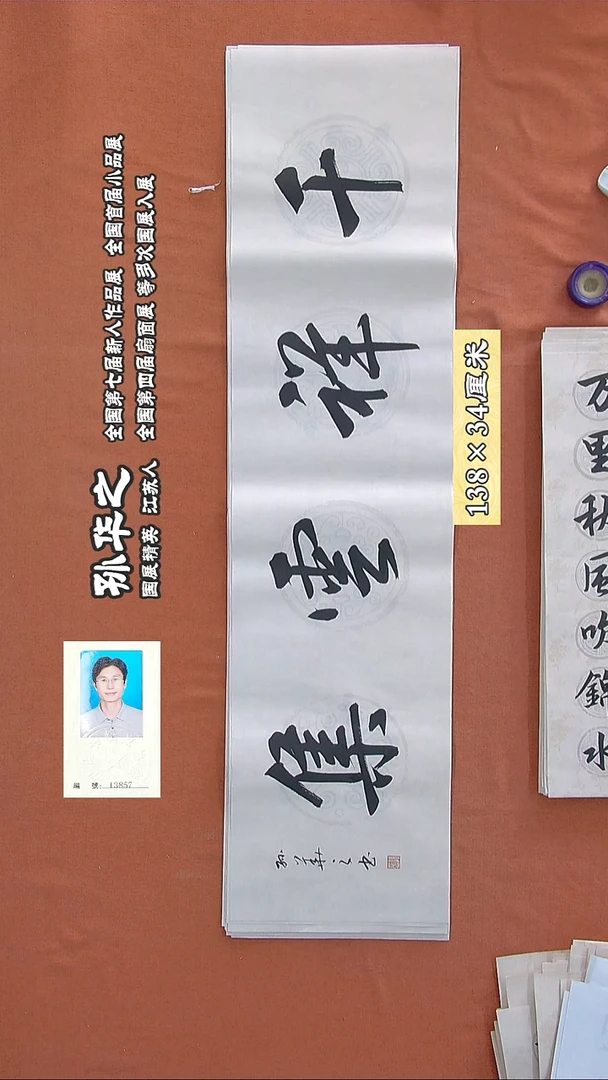 孙华之
国展精英 江苏人
全国第七届新人作品展 全国首届小品展
全国第四届扇面展 等多次国展入展
編 號: 13857
千祥雲集
孙華之书
138×34厘米
万里秋风吹錦水